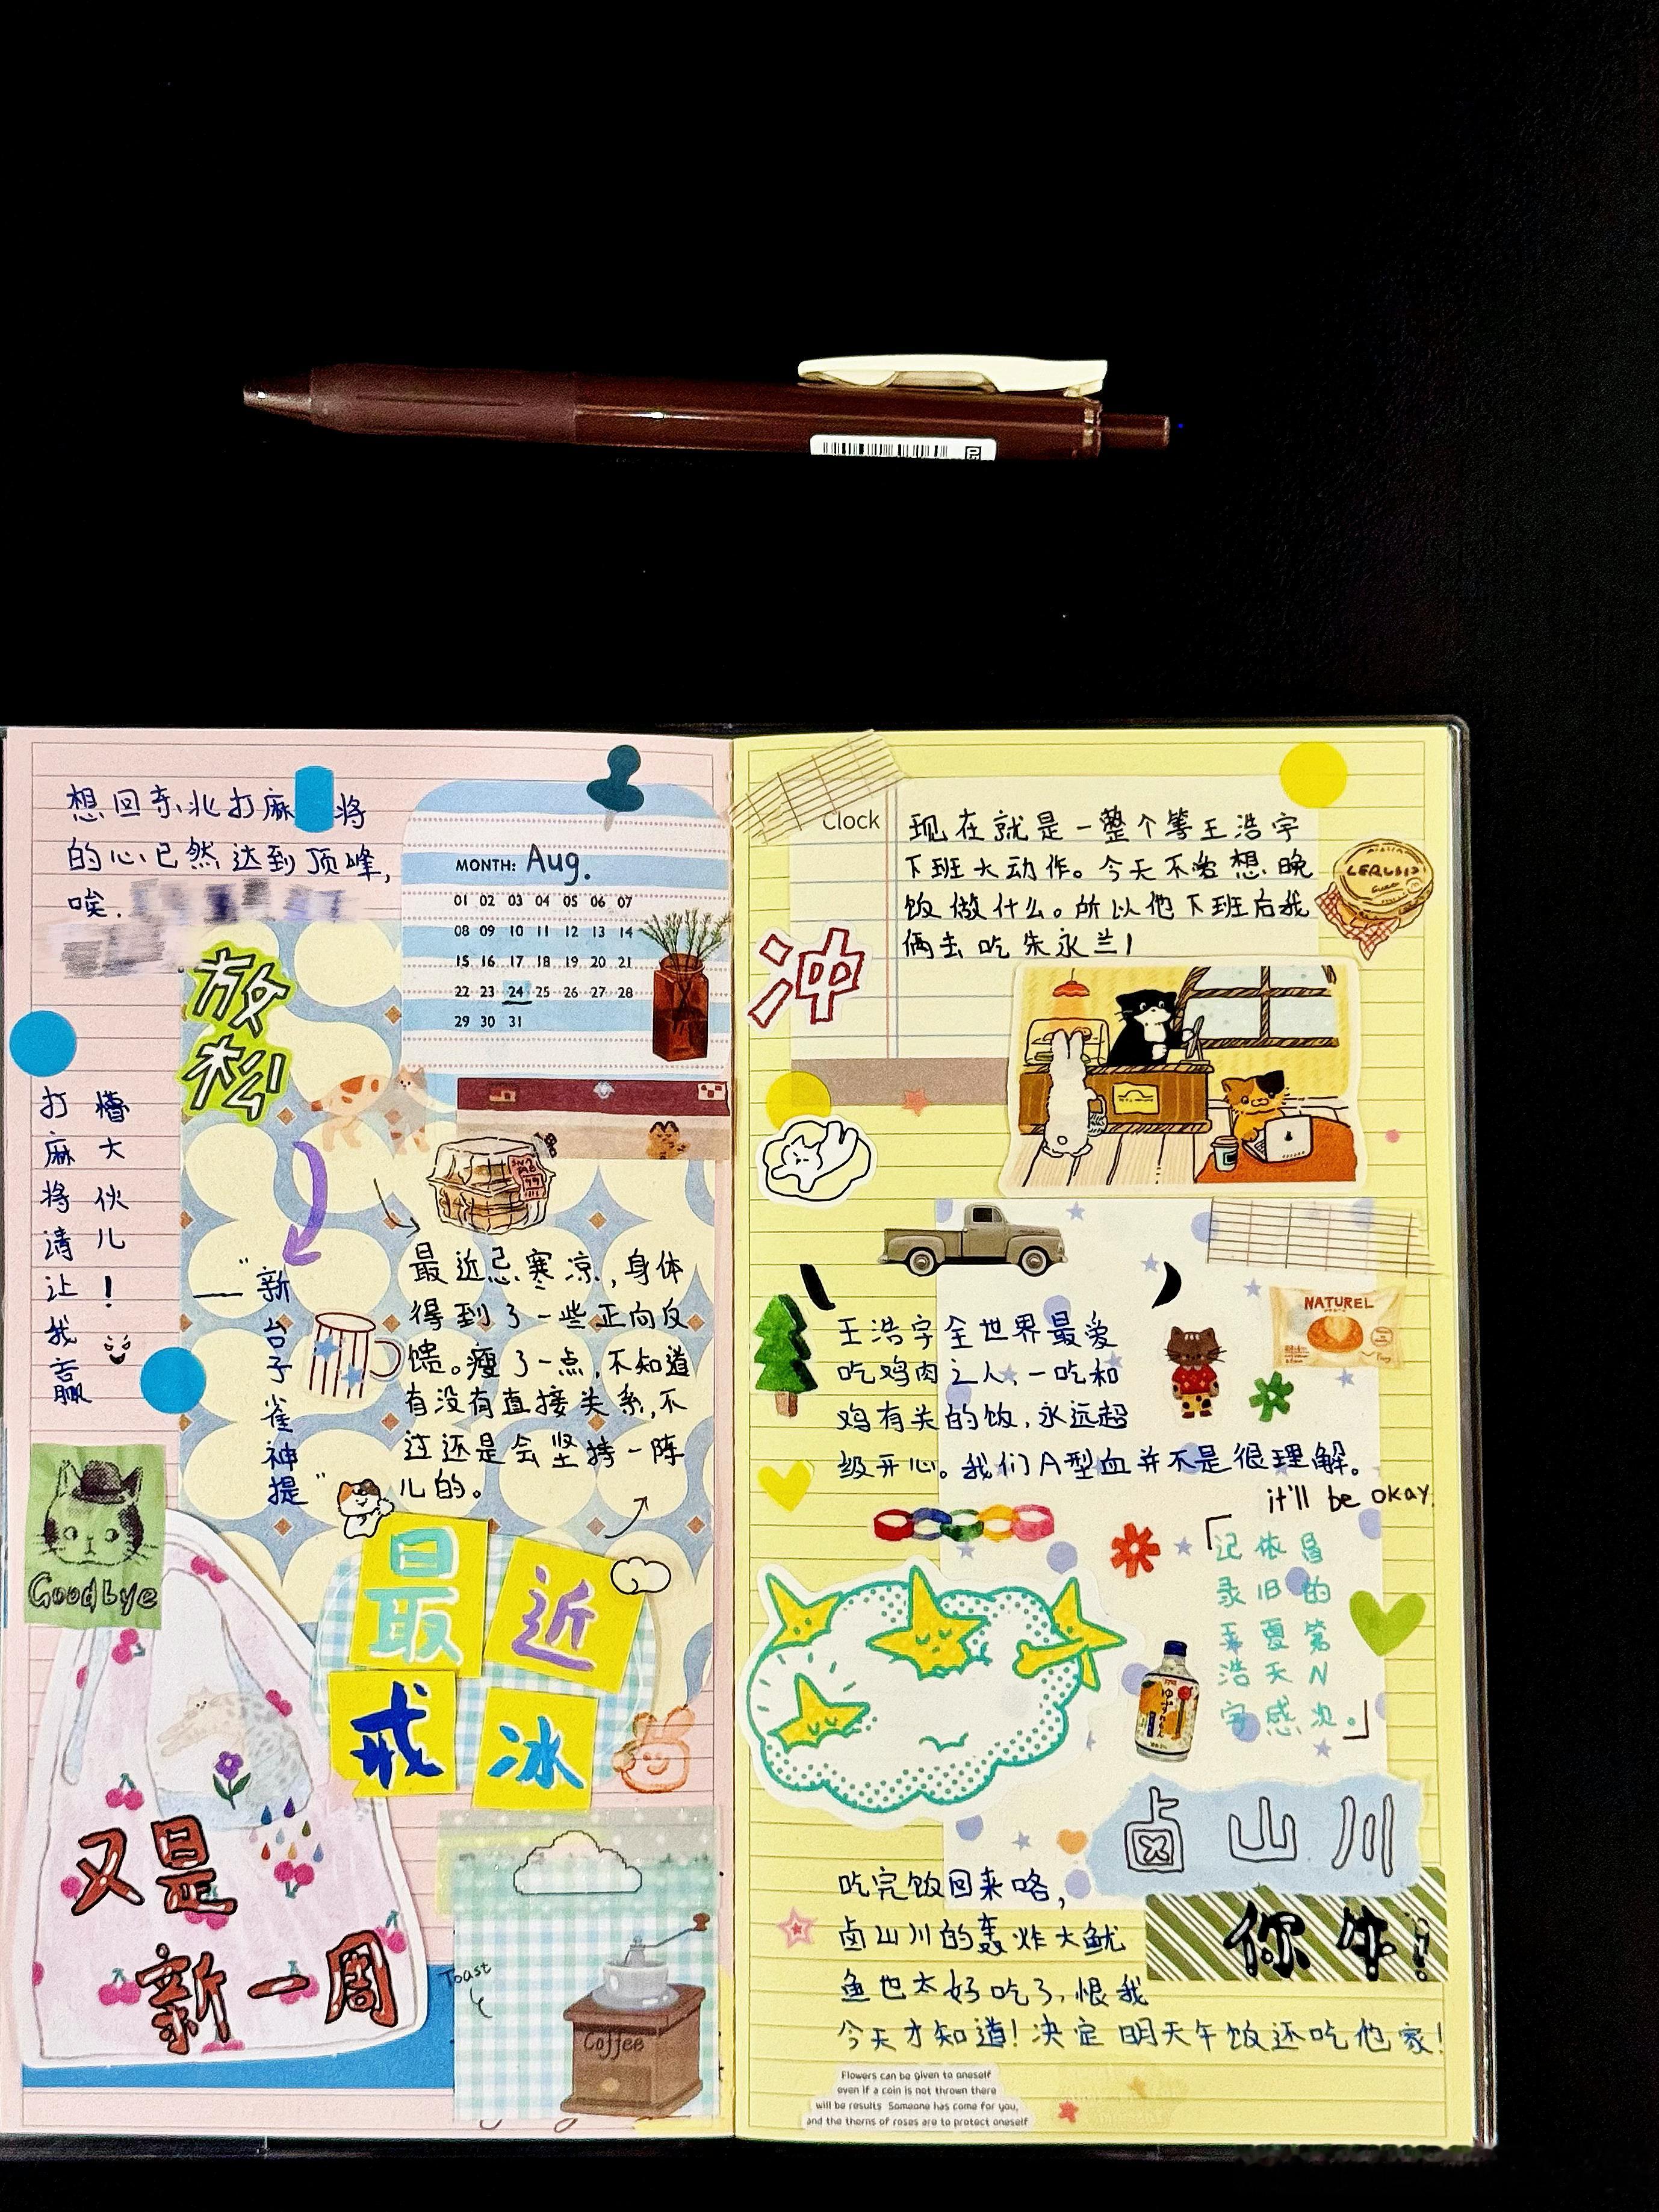 想回东北打麻将
的心已然达到顶峰,
唉.
MONTH: Aug.
01 02 03 04 05 06 07
08 09 10 11 12 13 14
15 16 17 18 19 20 21
22 23 24 25 26 27 28
29 30 31
放松
打麻将请让我赢
懵大伙儿!
——“新台子雀神提”
最近忌寒凉,身体
得到了一些正向反
馈。瘦了一点,不知道
有没有直接关系,不
过还是会坚持一阵
儿的。
Goodbye
最近
戒冰
又是
新一周
Toast
Coffee
Clock
现在就是一整个等王浩宇
下班大动作。今天不爱想晚
饭做什么。所以他下班后我
俩去吃朱永兰!
冲
王浩宇全世界最爱
吃鸡肉之人,一吃和
鸡有关的饭,永远超
级开心。我们A型血并不是很理解。
it'll be okay.
NATUREL
「记录王浩宇
依旧夏天感
冒的第N次。」
卤山川
你牛!
吃完饭回来咯,
卤山川的轰炸大鱿
鱼也太好吃了,恨我
今天才知道!决定明天午饭还吃他家!
Flowers can be given to oneself
even if a coin is not thrown there
will be results Someone has come for you,
and the thorns of roses are to protect oneself